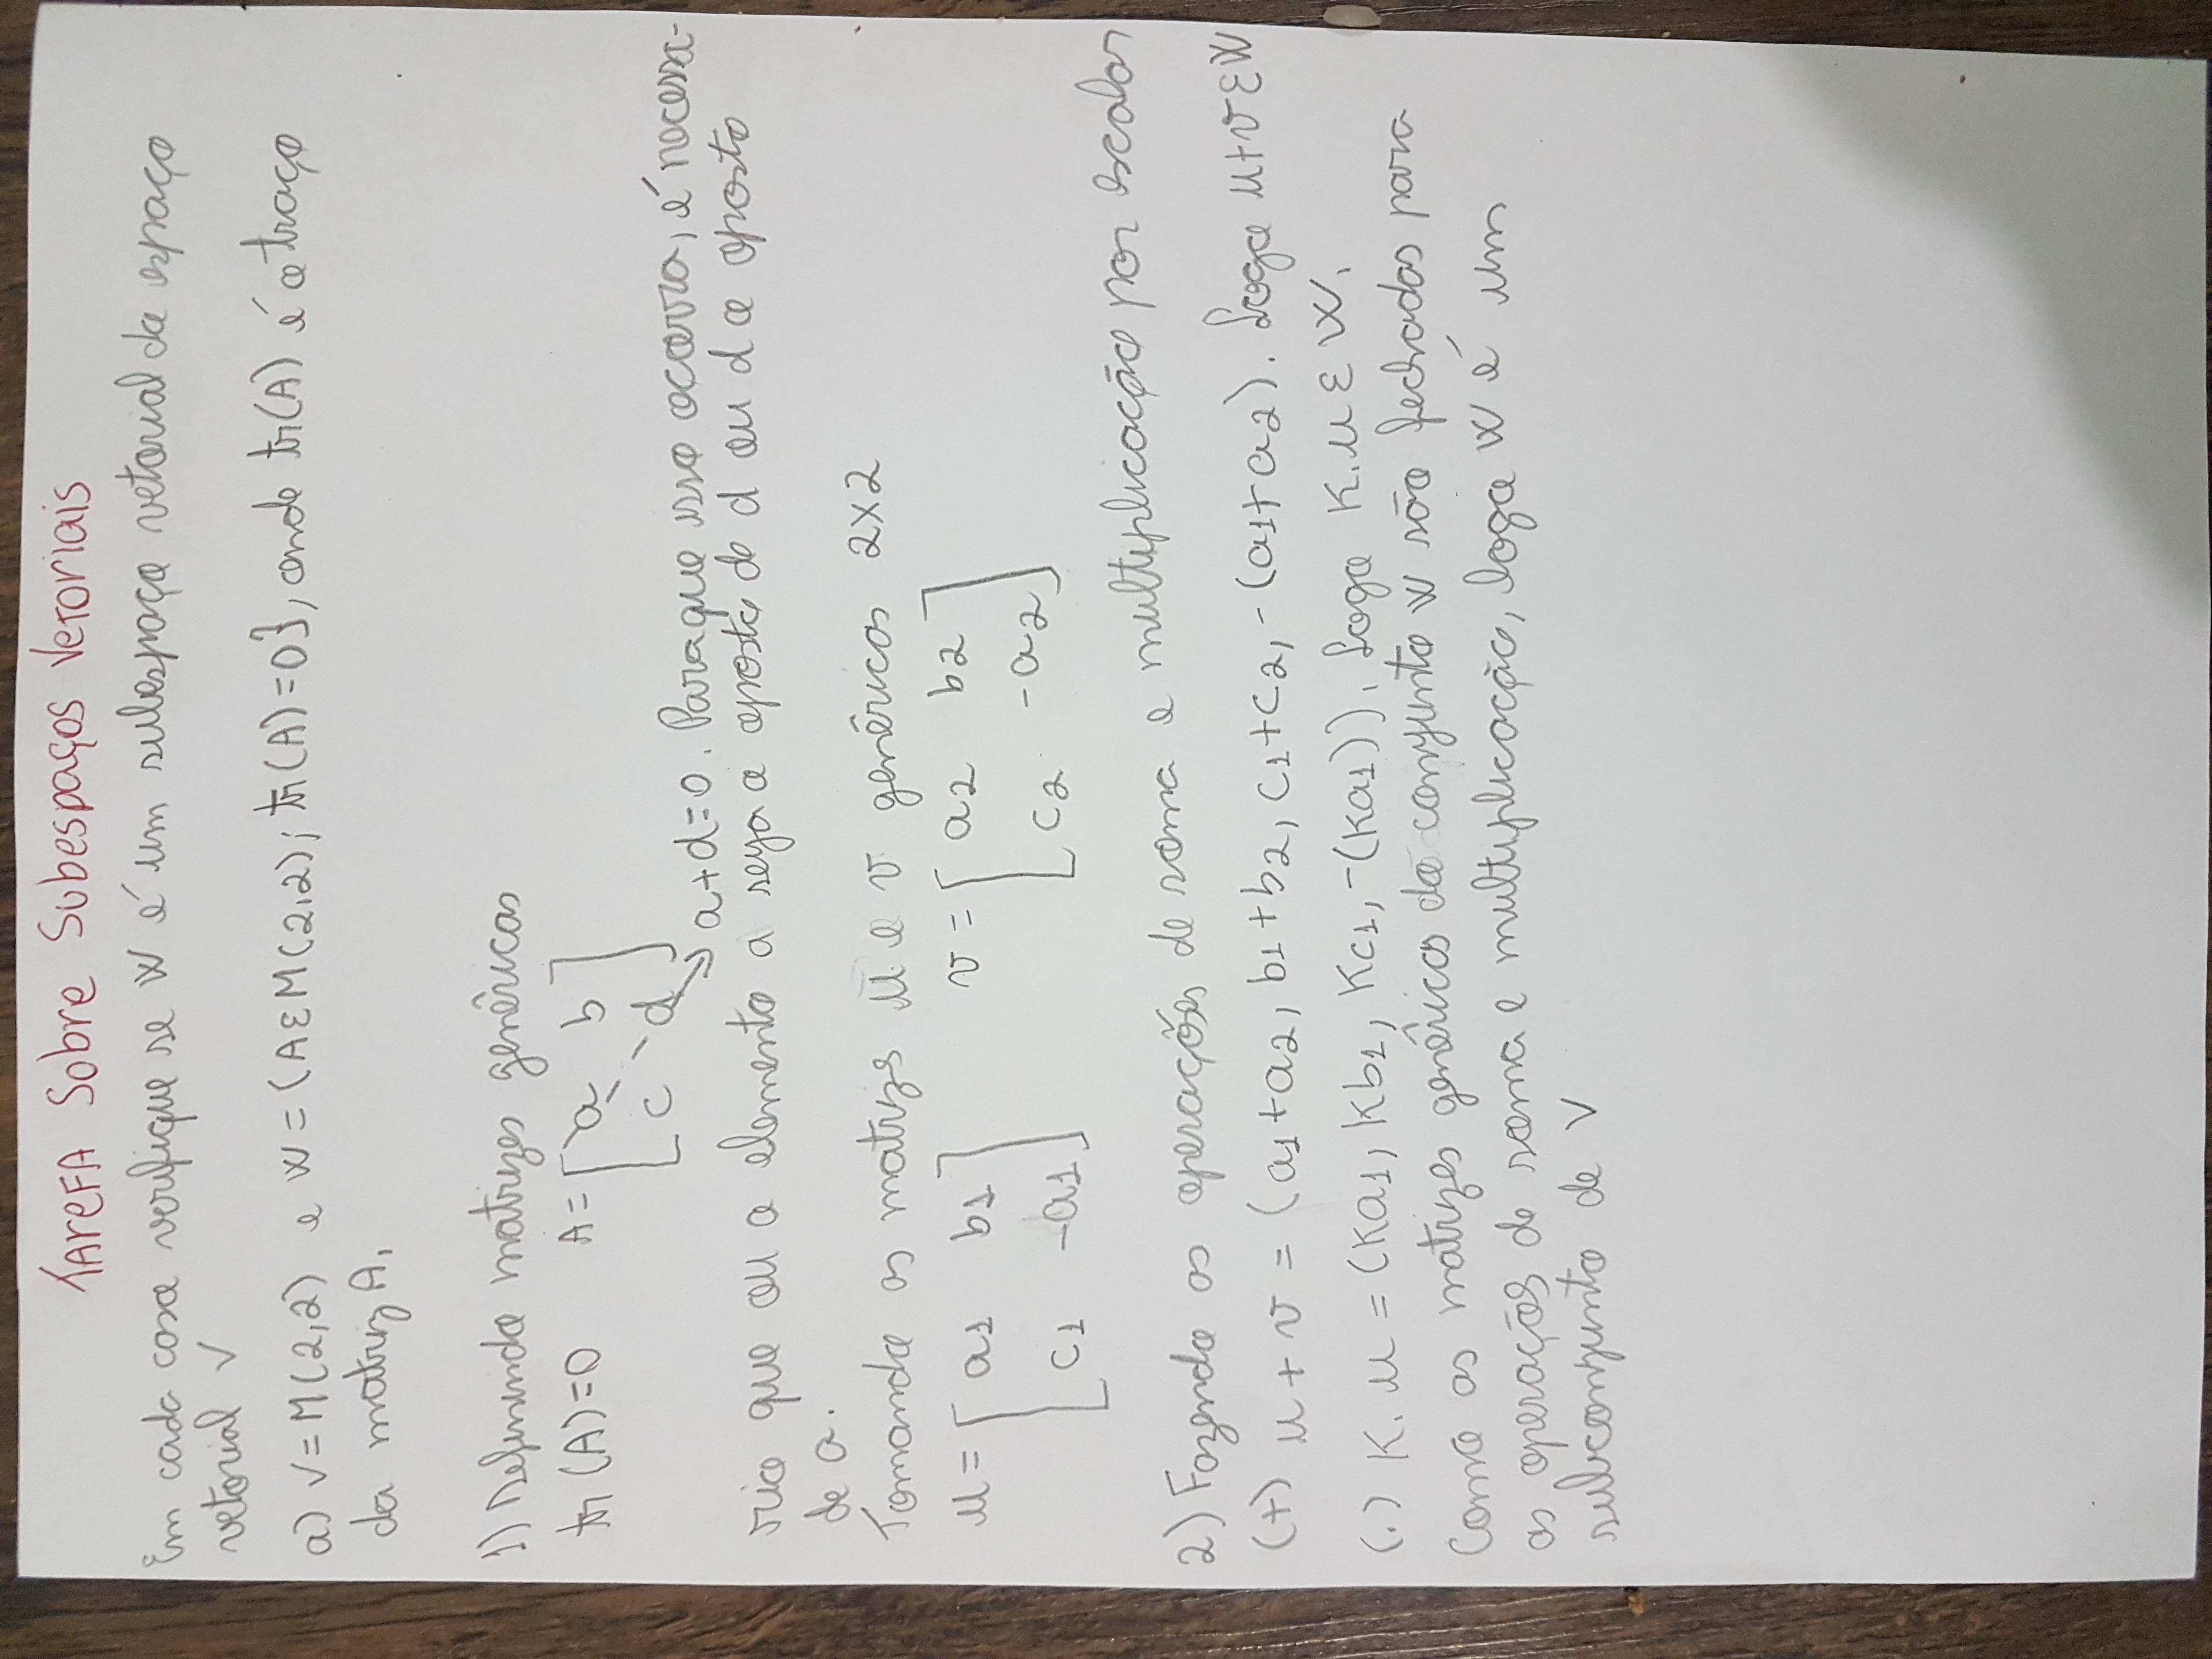 TAREFA Sobre Subespaços Vetoriais
Em cada caso verifique se W é um subespaço vetorial do espaço
vetorial V
a) V=M(2,2) e W={A ε M(2,2); tr(A)=0}, onde tr(A) é o traço
da matriz A.
1) Definindo matrizes genêricas
tr(A)=0 A= [ a b
c d ]
a+d=0. Para que isso ocorra, é necessa-
rio que ou o elemento a seja o oposto de d ou d o oposto
de a.
Tomando as matrizes u e v genêricas 2x2
u = [ a1 b1 v = [ a2 b2
c1 -a1 ] c2 -a2 ]
2) Fazendo as operações de soma e multiplicação por escalar
(+) u + v = (a1+a2, b1+b2, c1+c2, -(a1+a2). Logo u+v ε W
(.) K. u = (Ka1, Kb1, Kc1, -(Ka1)). Logo K.u ε W.
Como as matrizes genêricas do conjunto W são fechadas para
as operações de soma e multiplicação, logo W é um
subconjunto de V